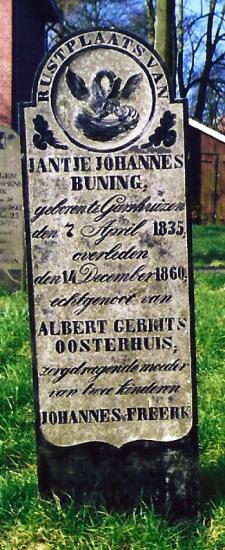 RUSTPLAATS VAN
JANTJE JOHANNES
BUNING,
geboren te Garshuizen
den 7 April 1835,
overleden
den 14 December 1860,
echtgenoot van
ALBERT GERRITS
OOSTERHUIS,
zorgdragende moeder
van twee kinderen
JOHANNES & FREERK